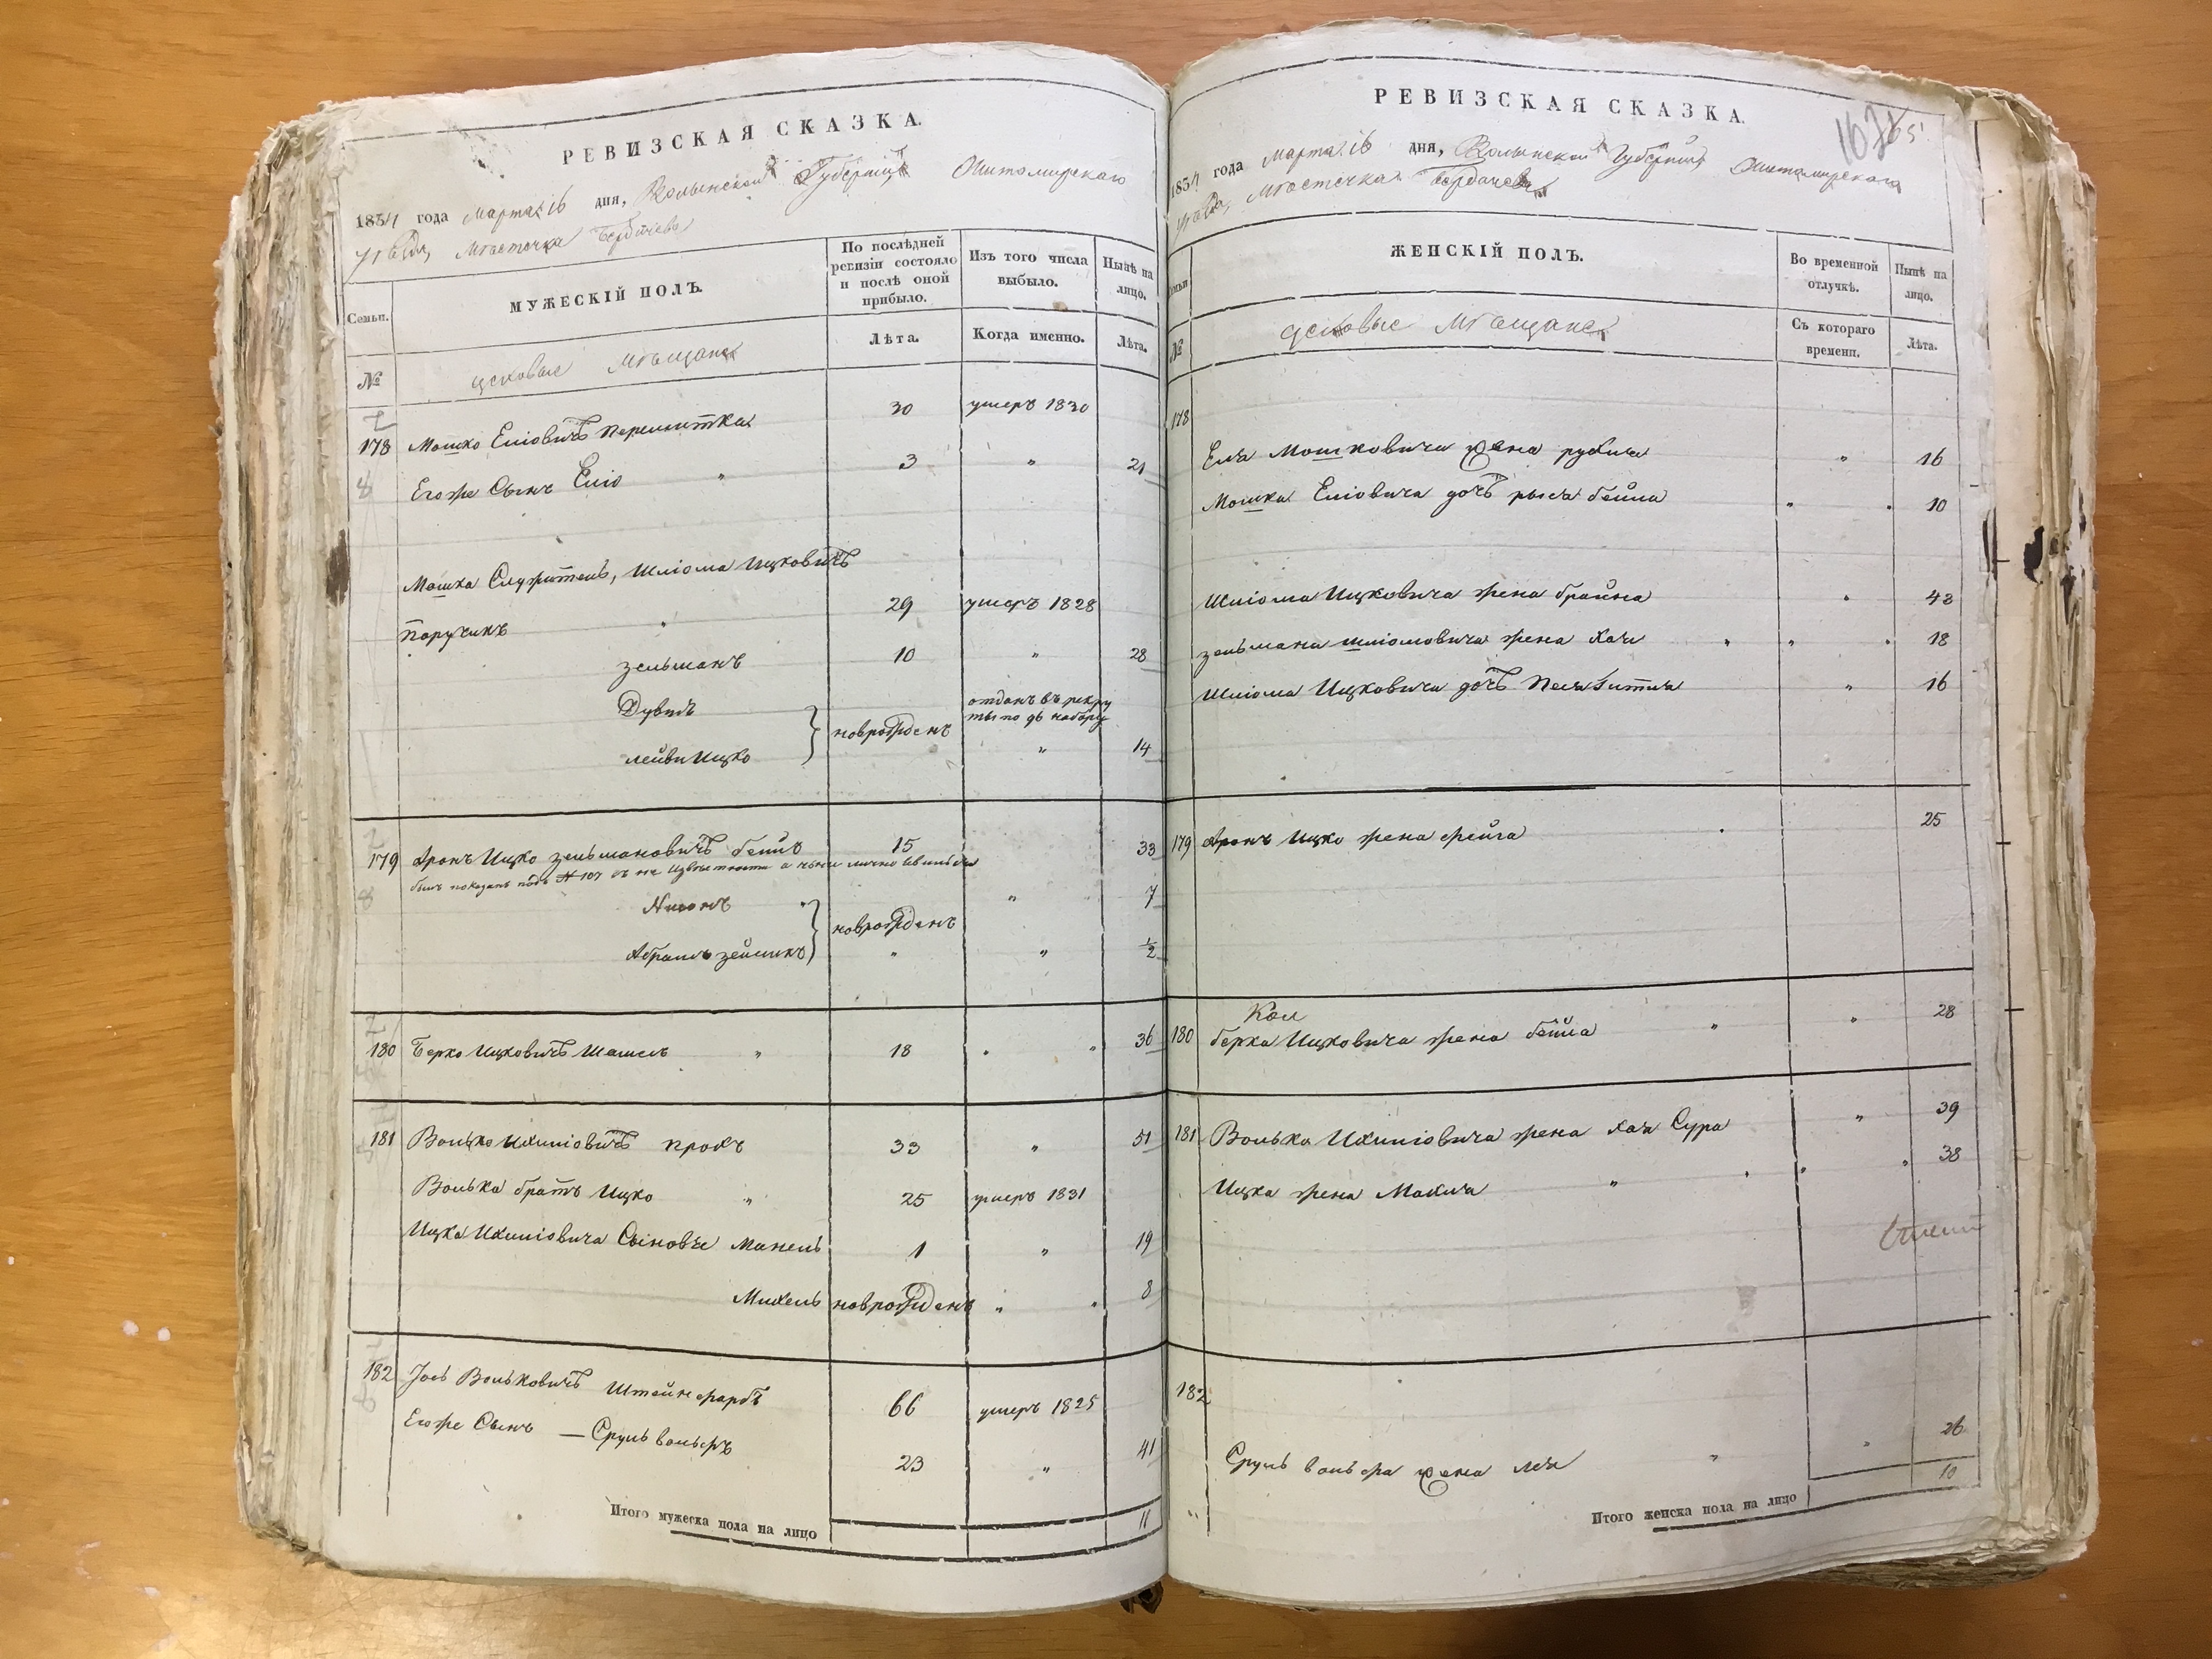 РЕВИЗСКАЯ СКАЗКА.
1834 года Марта 16 дня, Волынской Губернiи, Житомирскаго
уѣзда, Мѣстечка Бердичева
Семьи.
МУЖЕСКІЙ ПОЛЪ.
По послѣдней ревизіи состояло и послѣ оной прибыло.
Изъ того числа выбыло.
Нынѣ на лицо.
№
цеховые Мѣщане
Лѣта.
Когда именно.
Лѣта.
178 Мошко Елiовичъ 30 умеръ 1830
Егоже Сынъ Елiо " 3 " 21
Мошка Служитель, Шлiома Ицковичъ
Поручикъ " 29 умеръ 1828
Зельманъ 10 " 28
Дувидъ новрожденъ отданъ въ рекру
ты по 96 набору
лейви Ицко " 14
179 Аронъ Ицко Зельмановичъ 15 33
былъ показанъ подъ № 107
новрожденъ " 7
Абрамъ " " ½
180 Берко Ицковичъ " 18 " " 36
181 Волько Ихилiовичъ прохъ 33 " 51
Волька братъ Ицко " 25 умеръ 1831
Ицка Ихилiовича Сыновье Манель 1 " 19
Михель новрожденъ " " 8
182 Іось Вольковичъ Штейнфарбъ 66 умеръ 1825
Егоже Сынъ — Сруль вольфъ 23 " 41
Итого мужеска пола на лицо 11
РЕВИЗСКАЯ СКАЗКА.
1834 года Марта 16 дня, Волынской Губернiи, Житомирскаго
уѣзда, Мѣстечка Бердичева
Семьи
ЖЕНСКІЙ ПОЛЪ.
Во временной отлучкѣ.
Нынѣ на лицо.
№
цеховые Мѣщане
Съ котораго времени.
Лѣта.
178
Еля Мошковича жена рухля " 16
Мошка Елiовича дочь рыся бейла " " 10
Шлiома Ицковича жена брайна " 43
зельмана шлiомовича жена хая " " " 18
Шлiома Ицковича дочь " 16
179 Аронъ Ицко жена фейга 25
180 берка Ицковича жена бейла " " 28
181 Волька Ихилiовича жена хая Сура " 39
Ицка жена Махля " " " 38
182
Сруль вольфа жена лея " " 26
Итого женска пола на лицо 10